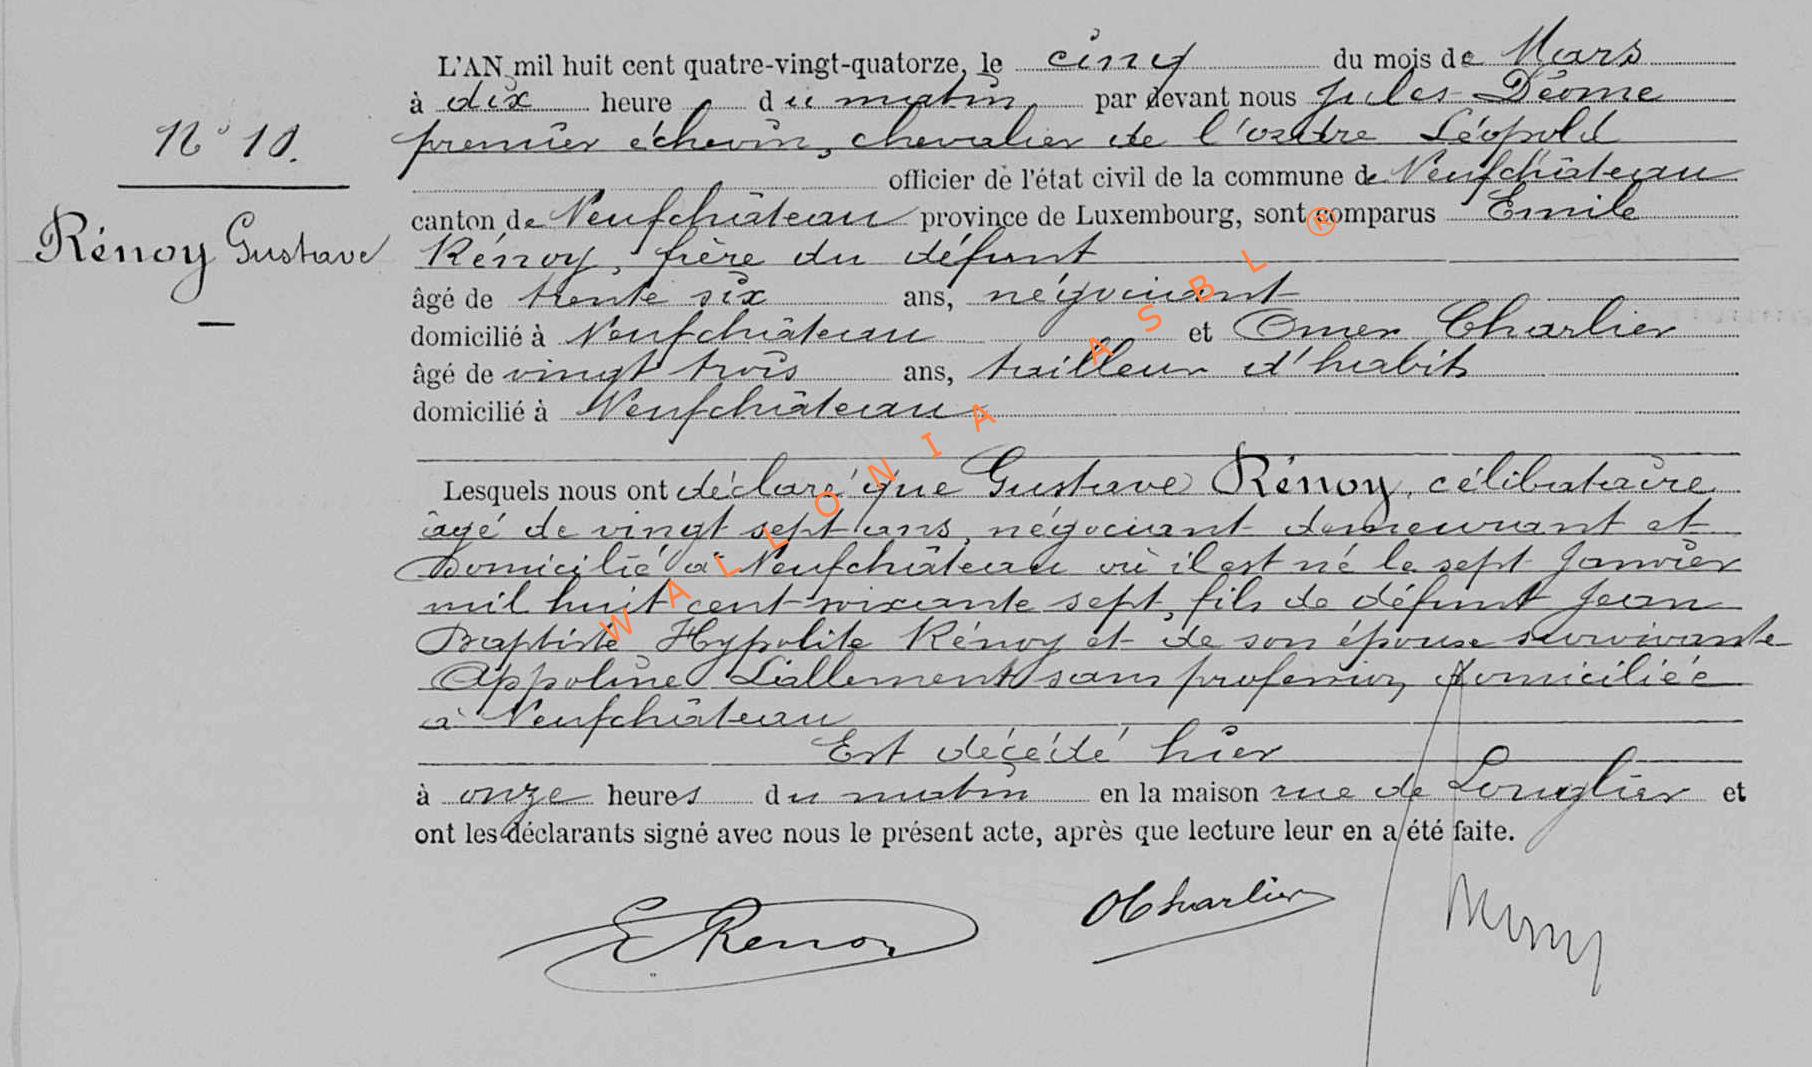 L'AN mil huit cent quatre-vingt-quatorze, le cinq du mois de Mars
à dix heure du matin, par devant nous Jules Déome
N° 10. premier échevin, chevalier de l'ordre Léopold
officier de l'état civil de la commune de Neufchâteau
canton de Neufchâteau province de Luxembourg, sont comparus Emile
Rénoy Gustave Rénoy, frère du défunt
âgé de trente six ans, négociant
domicilié à Neufchâteau et Omer Charlier
âgé de vingt trois ans, tailleur d'habits
domicilié à Neufchâteau
Lesquels nous ont déclaré que Gustave Rénoy, célibataire
âgé de vingt sept ans, négociant demeurant et
Domicilié à Neufchâteau où il est né le sept Janvier
mil huit cent soixante sept, fils de défunt Jean
Baptiste Hypolite Rénoy et de son épouse survivante
Appoline Lallement sans profession, domiciliée
à Neufchâteau
Est décédé hier
à onze heures du matin en la maison rue de Longlier et
ont les déclarants signé avec nous le présent acte, après que lecture leur en a été faite.
E Renoy OCharlier
WALLONIA ASBL ®